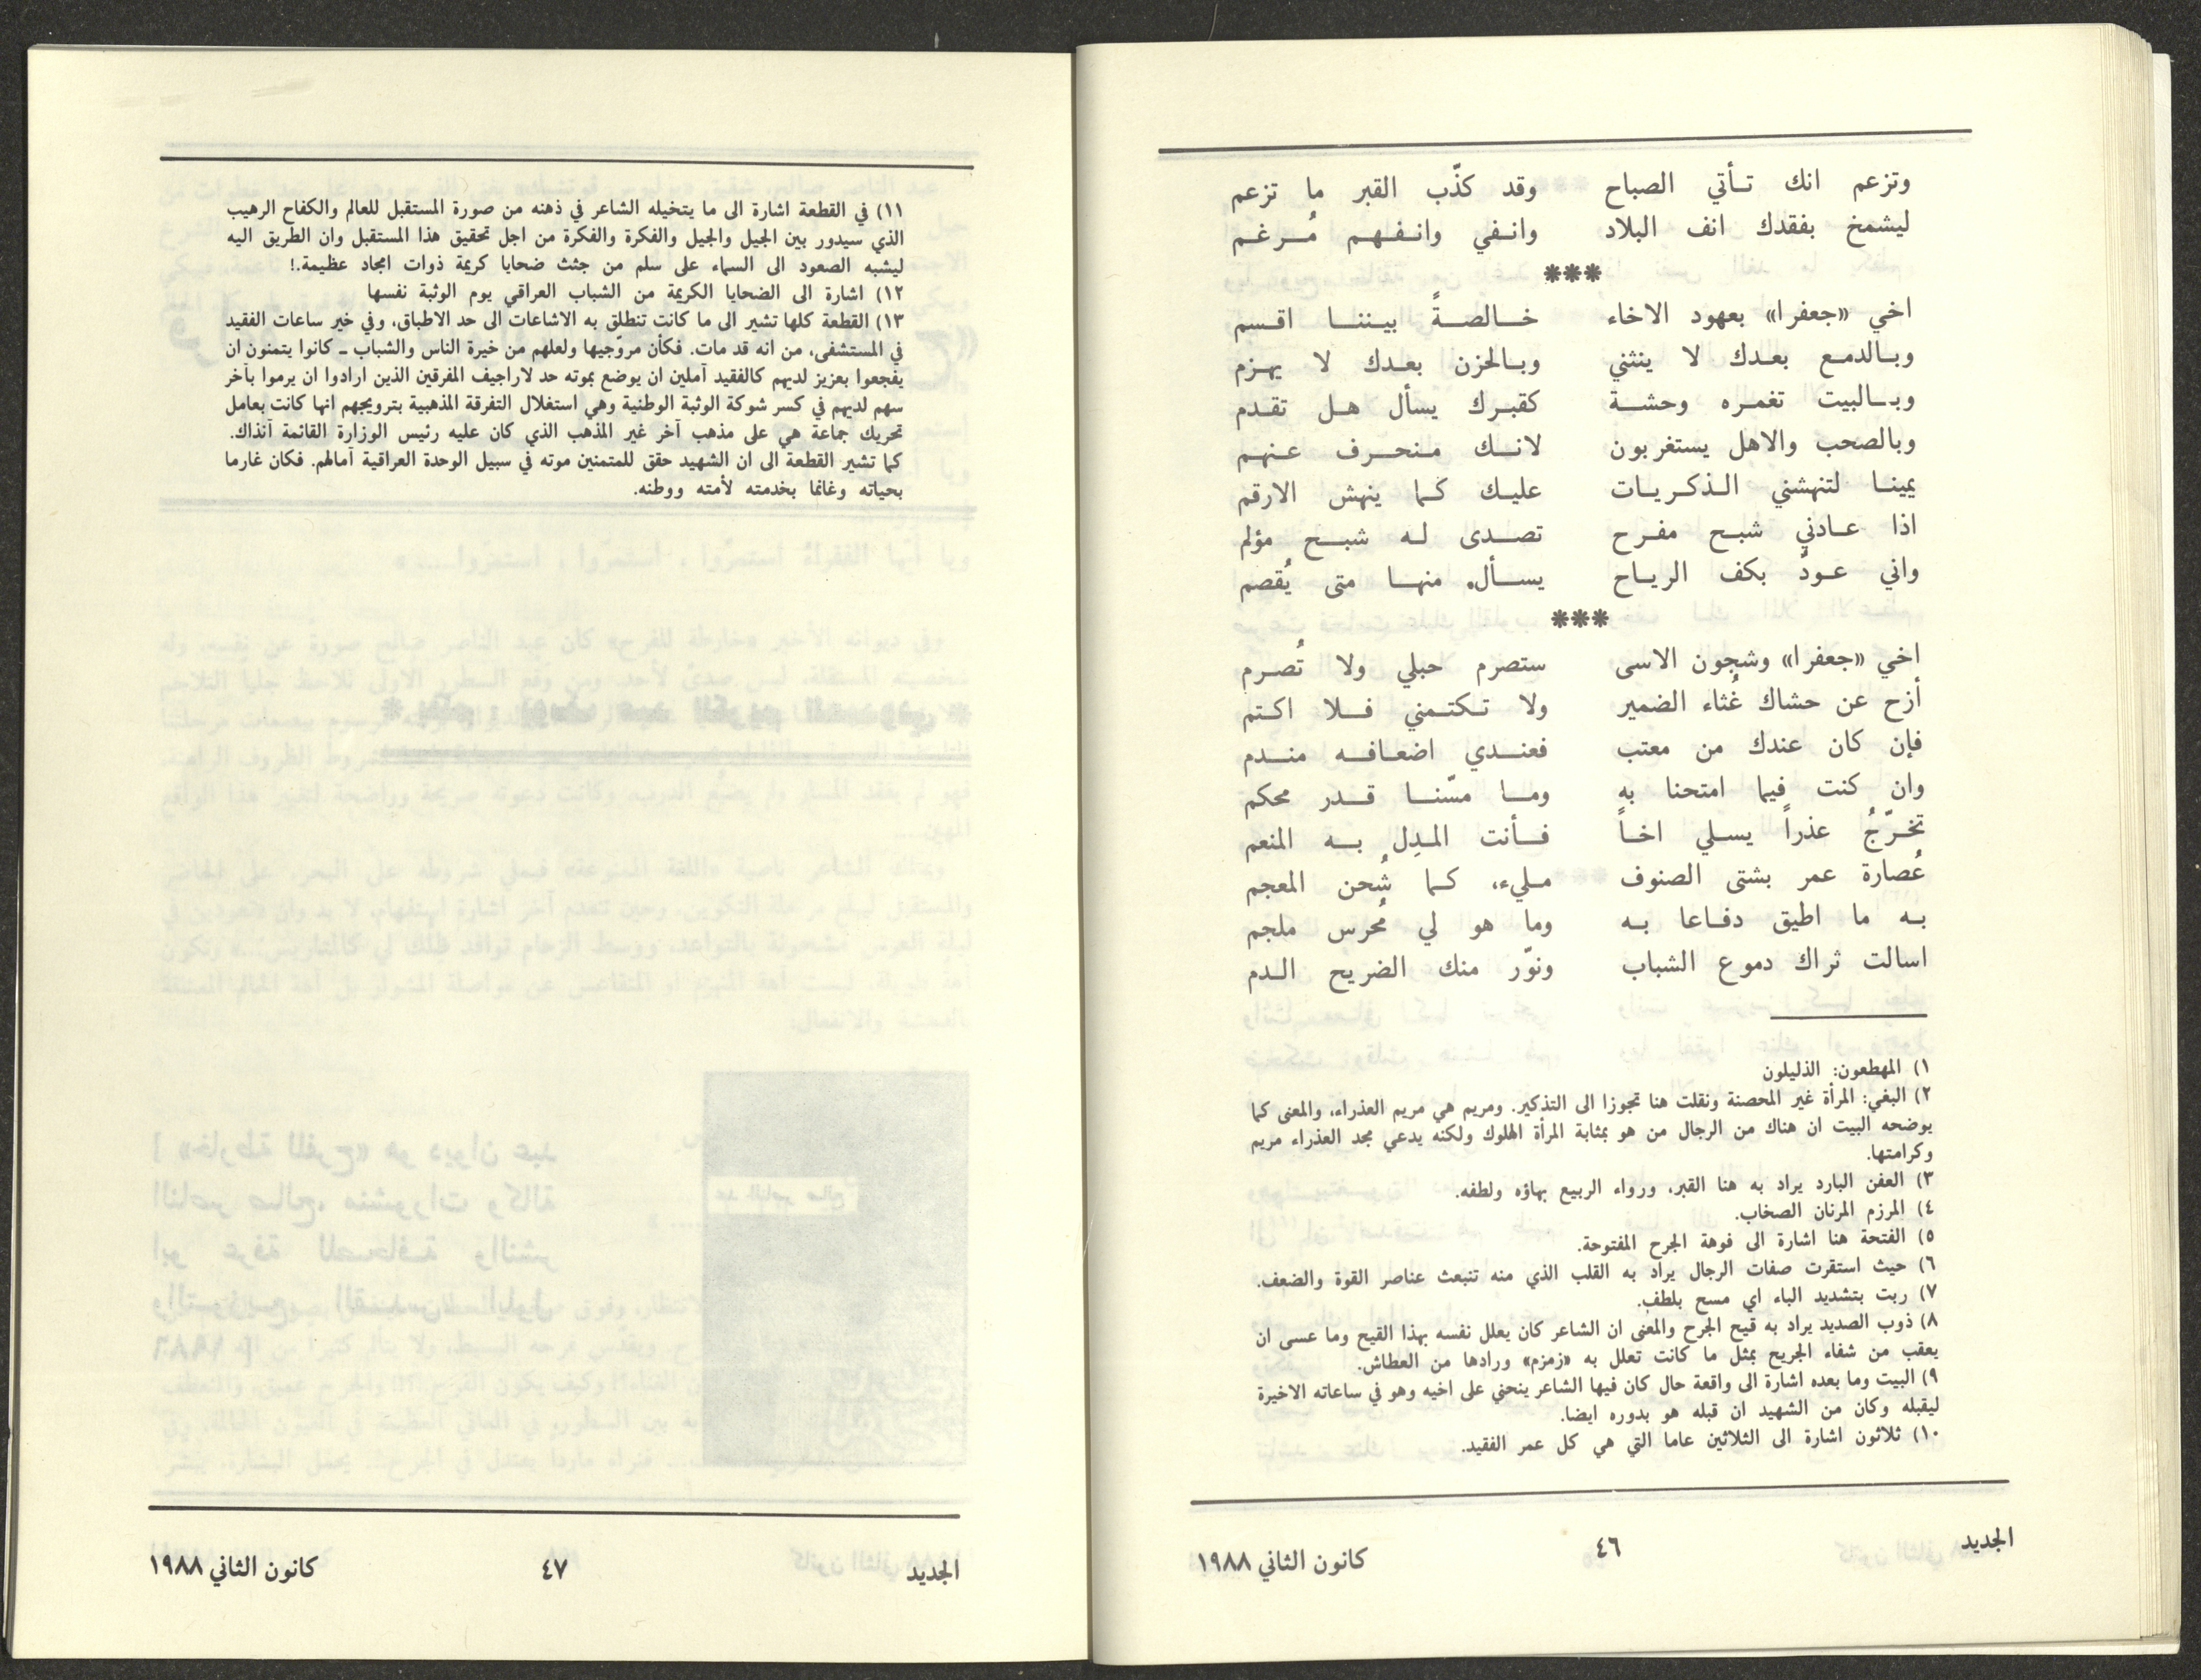 وتزعم انك تـأتي الصباح    وقد كذّب القبر ما تزعم
ليشمخ بفقدك انف البلاد    وانـفي وانـفـهـم مُـرغـم
***
اخي «جعفرا» بعهود الاخاء    خـالصـةً بيـننـا اقـسم
وبـالدمـع بعـدك لا ينثني    وبـالحزن بعـدك لا يهـزم
وبـالبيت تغمـره وحشـة    كقبـرك يسأل هـل تقـدم
وبالصحب والاهل يستغربون    لانـك مـنحـرف عـنهـم
يمينـا لتنهشني الـذكـريـات    عليـك كـما ينهش الارقم
اذا عـادني شبـح مفـرح    تصـدى لـه شبـح مؤلم
واني عـودٌ بكف الريـاح    يسـأل. منهـا متى يُقصم
***
اخي «جعفرا» وشجون الاسى    ستصرم حبلي ولا تُصـرم
أزح عن حشاك غُثاء الضمير    ولا تـكتـمني فـلا اكـتم
فإن كان عندك من معتب    فعنـدي اضعـافـه منـدم
وان كنت فيما امتحنا به    ومـا مسّنـا قـدر محكم
تخـرّجُ عذراً يسـلي اخـاً    فـأنت المـدِل بـه المنعم
عُصارة عمر بشتى الصنوف    مـليء، كـما شُحن المعجم
بـه ما اطيق دفـاعا بـه    وما هو لي مُخرس ملجم
اسالت ثراك دموع الشباب    ونوّر منك الضريح الـدم
١) المهطعون: الذليلون
٢) البغي: المرأة غير المحصنة ونقلت هنا تجوزا الى التذكير. ومريم هي مريم العذراء، والمعنى كما
يوضحه البيت ان هناك من الرجال من هو بمثابة المرأة الهلوك ولكنه يدعي مجد العذراء مريم
وكرامتها.
٣) العفن البارد يراد به هنا القبر، ورواء الربيع بهاؤه ولطفه.
٤) المرزم المرنان الصخاب.
٥) الفتحة هنا اشارة الى فوهة الجرح المفتوحة.
٦) حيث استقرت صفات الرجال يراد به القلب الذي منه تنبعث عناصر القوة والضعف.
٧) ربت بتشديد الباء اي مسح بلطف.
٨) ذوب الصديد يراد به قيح الجرح والمعنى ان الشاعر كان يعلل نفسه بهذا القيح وما عسى ان
يعقب من شفاء الجريح بمثل ما كانت تعلل به «زمزم» ورادها من العطاش.
٩) البيت وما بعده اشارة الى واقعة حال كان فيها الشاعر ينحني على اخيه وهو في ساعاته الاخيرة
ليقبله وكان من الشهيد ان قبله هو بدوره ايضا.
١٠) ثلاثون اشارة الى الثلاثين عاما التي هي كل عمر الفقيد.
الجديد    ٤٦    كانون الثاني ١٩٨٨
١١) في القطعة اشارة الى ما يتخيله الشاعر في ذهنه من صورة المستقبل للعالم والكفاح الرهيب
الذي سيدور بين الجيل والجيل والفكرة والفكرة من اجل تحقيق هذا المستقبل وان الطريق اليه
ليشبه الصعود الى السماء على سلم من جثث ضحايا كريمة ذوات امجاد عظيمة.!
١٢) اشارة الى الضحايا الكريمة من الشباب العراقي يوم الوثبة نفسها
١٣) القطعة كلها تشير الى ما كانت تنطلق به الاشاعات الى حد الاطباق، وفي خير ساعات الفقيد
في المستشفى، من انه قد مات. فكأن مروّجيها ولعلهم من خيرة الناس والشباب ـ كانوا يتمنون ان
يفجعوا بعزيز لديهم كالفقيد آملين ان يوضع بموته حد لاراجيف المفرقين الذين ارادوا ان يرموا بآخر
سهم لديهم في كسر شوكة الوثبة الوطنية وهي استغلال التفرقة المذهبية بترويجهم انها كانت بعامل
تحريك جماعة هي على مذهب آخر غير المذهب الذي كان عليه رئيس الوزارة القائمة آنذاك.
كما تشير القطعة الى ان الشهيد حقق للمتمنين موته في سبيل الوحدة العراقية آمالهم. فكان غارما
بحياته وغانما بخدمته لأمته ووطنه.
الجديد    ٤٧    كانون الثاني ١٩٨٨